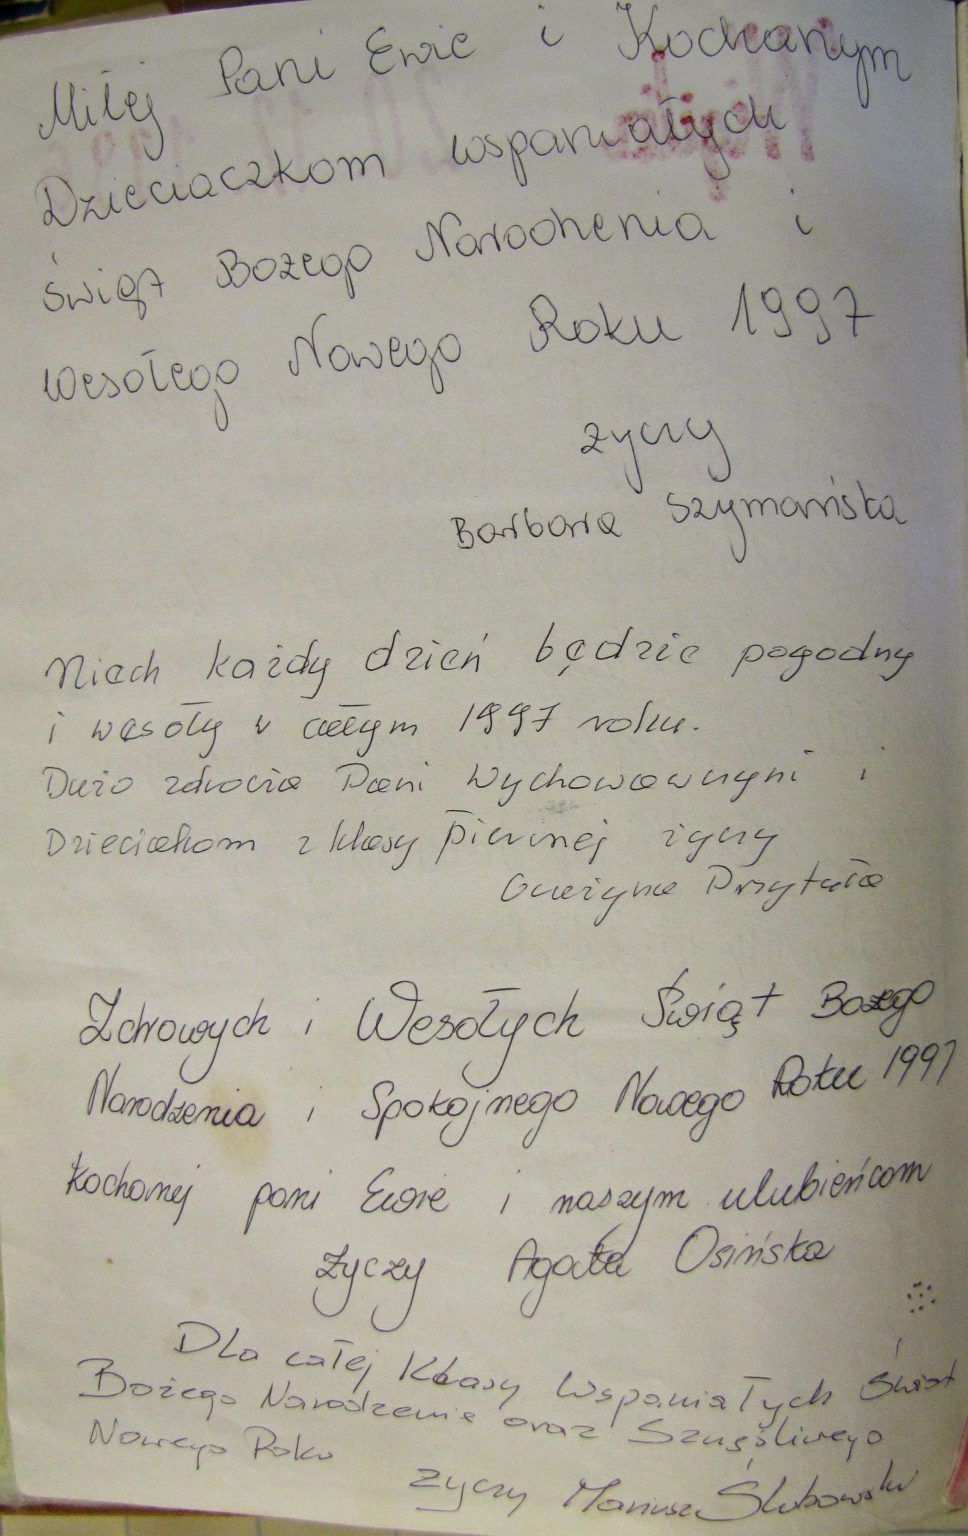 Miłej Pani Ewie i Kochanym
Dzieciaczkom wspaniałych
Świąt Bożego Narodzenia i
Wesołego Nowego Roku 1997
życzy
Barbara Szymańska
Niech każdy dzień będzie pogodny
i wesoły w całym 1997 roku.
Dużo zdrowia Pani Wychowawczyni i
Dzieciakom z klasy pierwszej życzy
Grażyna Przytuła
Zdrowych i Wesołych Świąt Bożego
Narodzenia i Spokojnego Nowego Roku 1997
kochanej pani Ewie i naszym ulubieńcom
życzy Agata Osińska
Dla całej Klasy Wspaniałych Świąt
Bożego Narodzenia oraz Szczęśliwego
Nowego Roku
życzy Mariusz Ślubowski